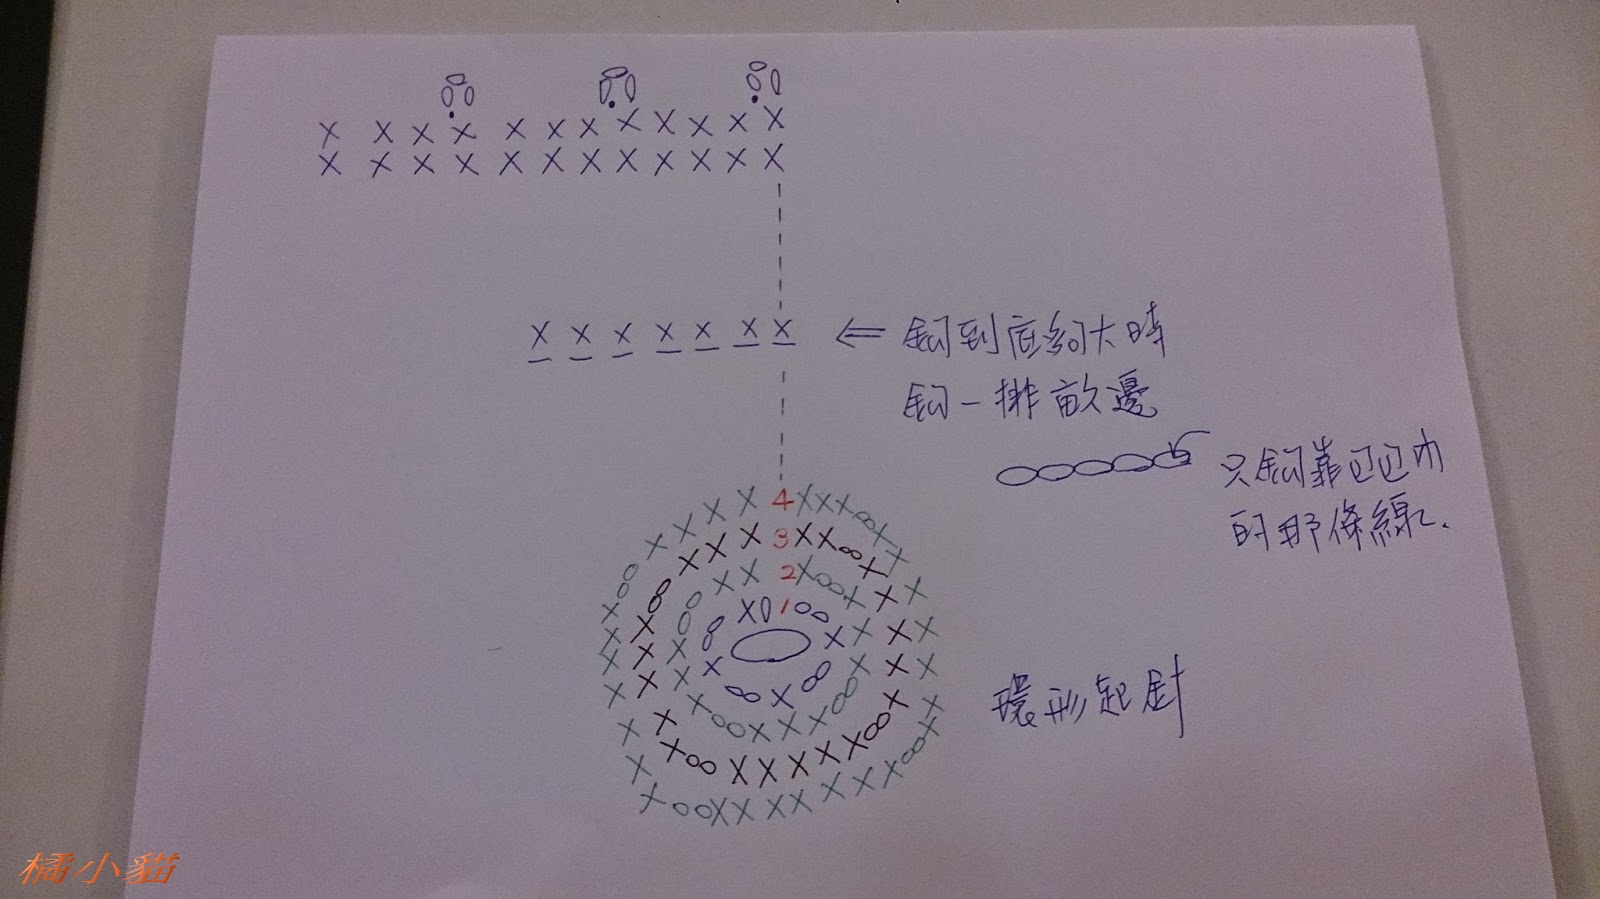 鉤到底夠大時
鉤一排畝邊
只鉤靠
的那條線.
4
3
2
1
環形起針
橘小貓